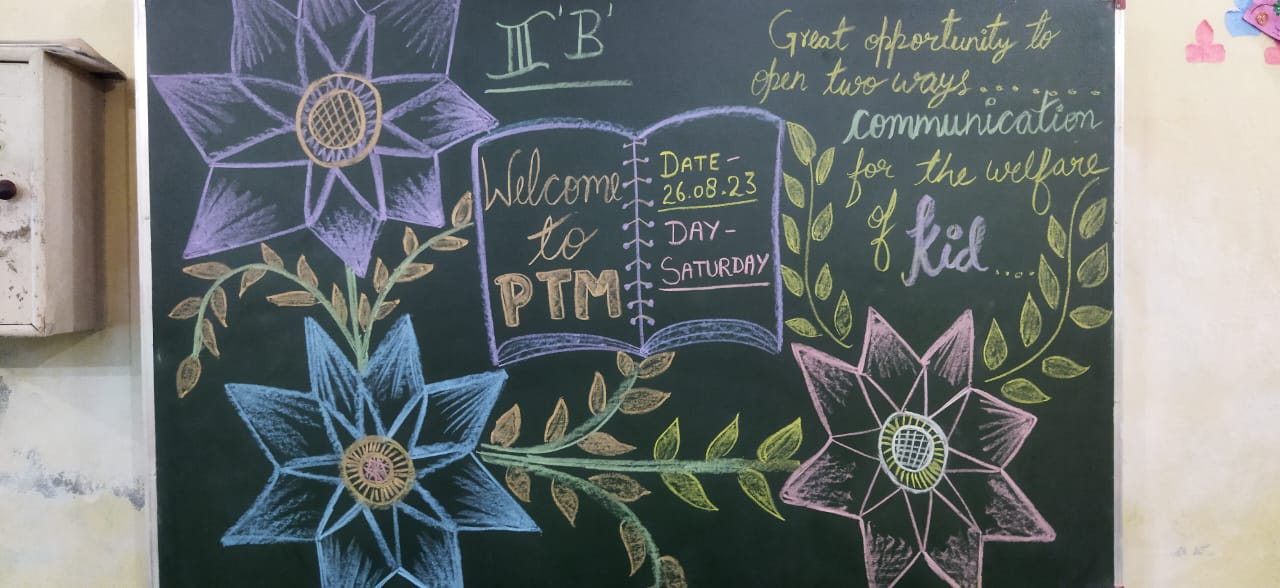 III 'B'
Welcome
to
PTM
DATE -
26.08.23
DAY -
SATURDAY
Great opportunity to
open two ways.......
communication
for the welfare
of kid....